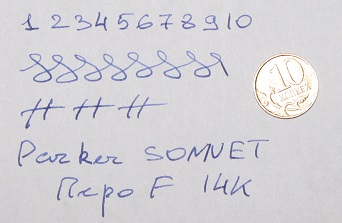 1 2 3 4 5 6 7 8 9 10
# # #
Parker SONNET
Перо F 14K
10
КОПЕЕК